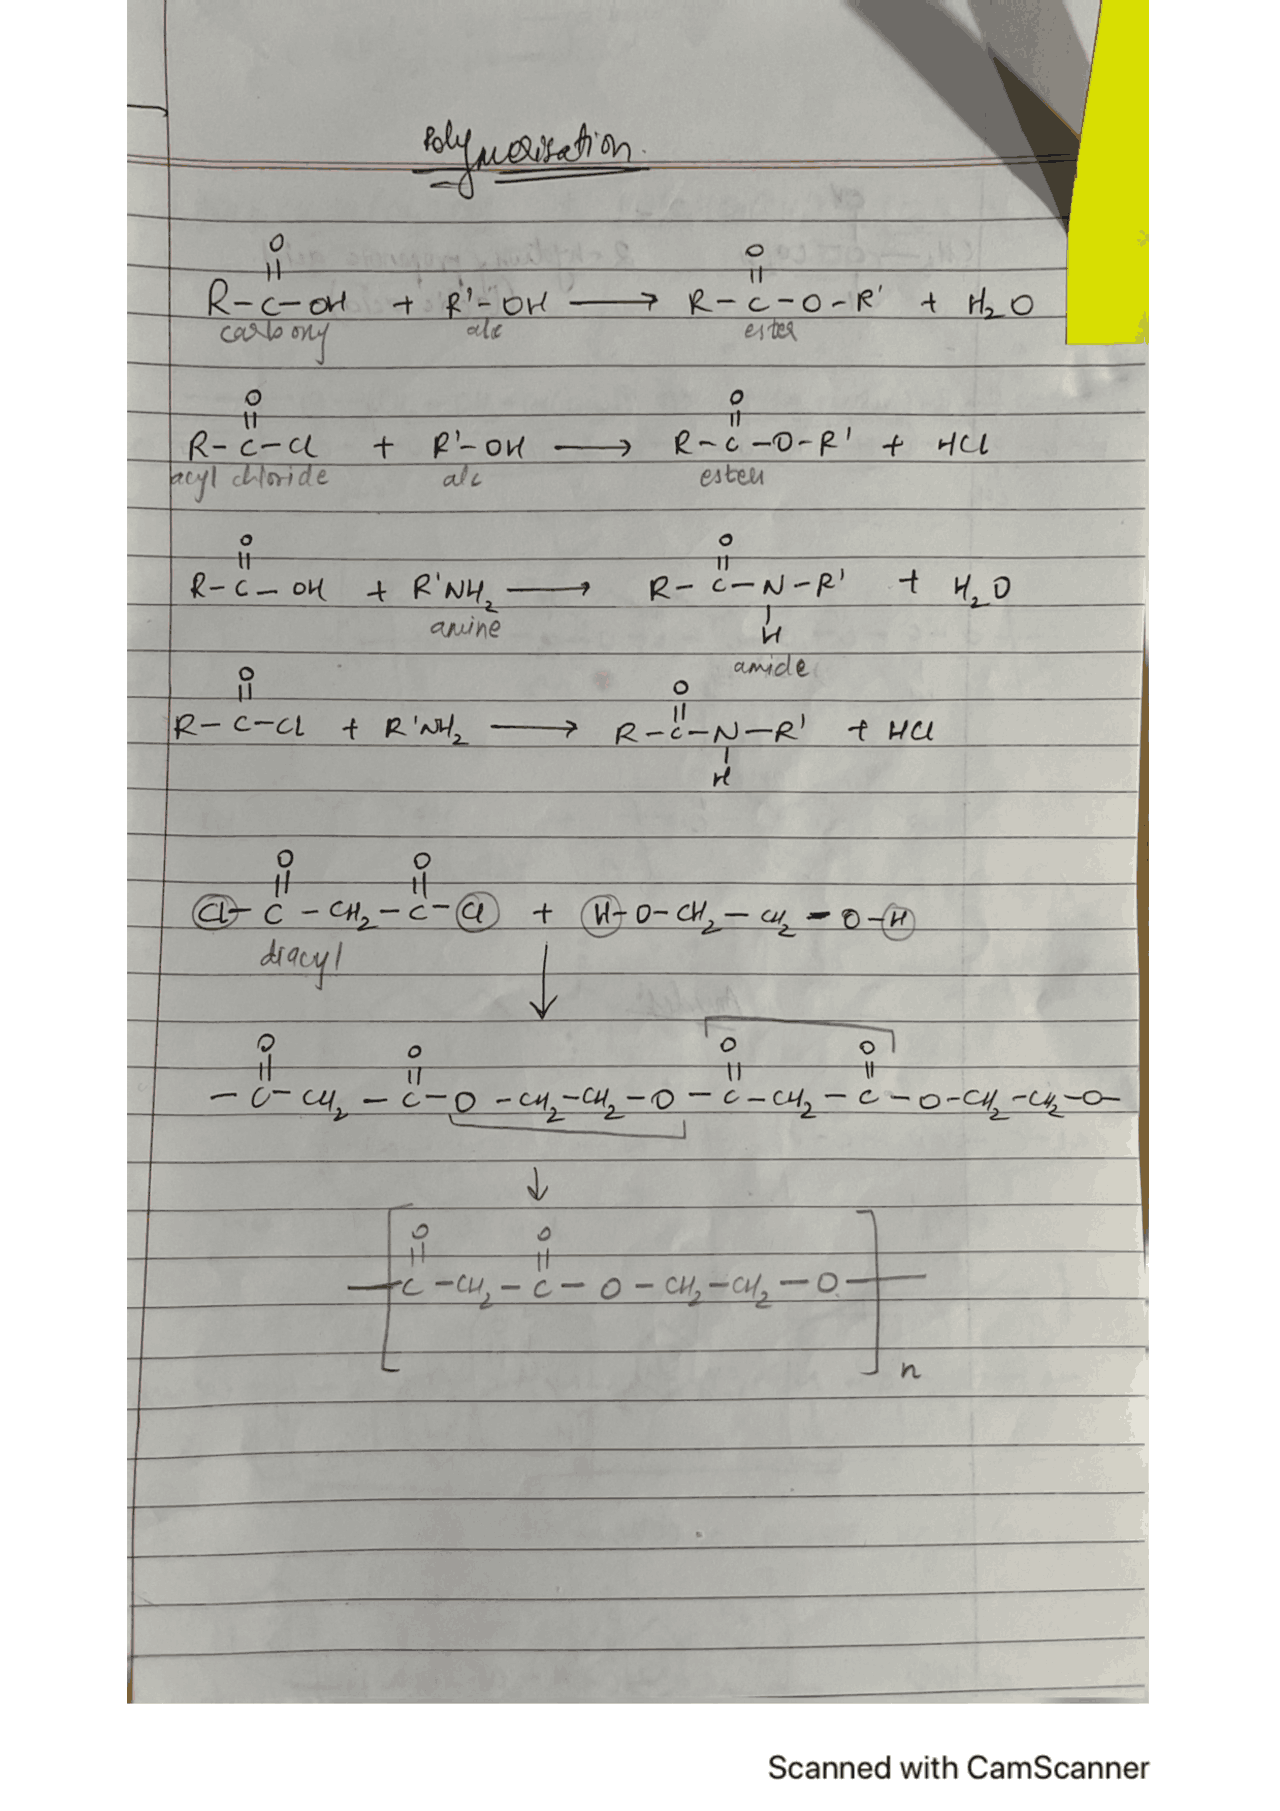 Polymerisation.
O
||
R-C-OH + R'-OH ⟶ R-C-O-R' + H₂O
carbony alc ester
O
||
R-C-Cl + R'-OH ⟶ R-C-O-R' + HCl
acyl chloride alc ester
O
||
R-C-OH + R'NH₂ ⟶ R-C-N-R' + H₂O
amine
H
amide
O
||
R-C-Cl + R'NH₂ ⟶ R-C-N-R' + HCl
H
O O
|| ||
Cl-C-CH₂-C-Cl + H-O-CH₂-CH₂-O-H
diacyl
↓
O O O O
|| || || ||
-C-CH₂-C-O-CH₂-CH₂-O-C-CH₂-C-O-CH₂-CH₂-O-
↓
O O
|| ||
[-C-CH₂-C-O-CH₂-CH₂-O-]
n
Scanned with CamScanner